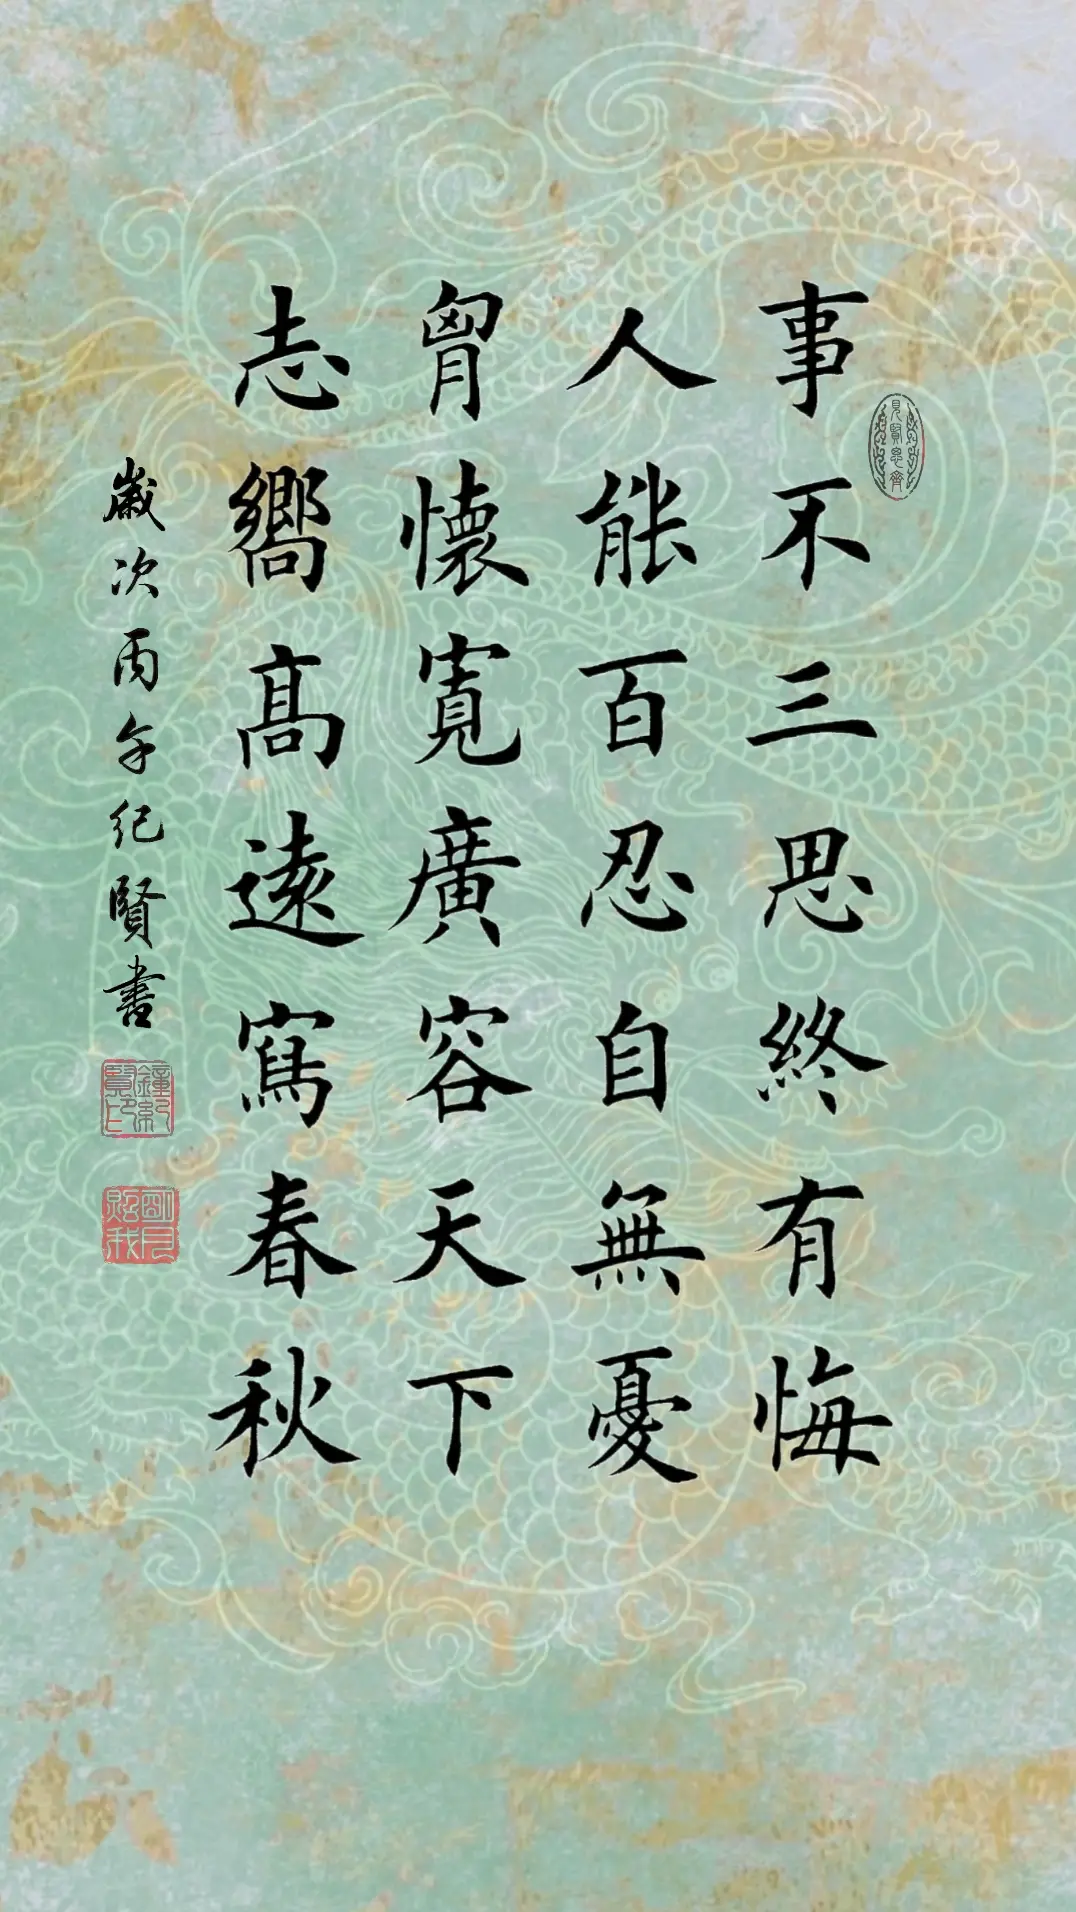 事不三思終有悔
人能百忍自無憂
胷懷寬廣容天下
志嚮高遠寫春秋
歲次丙午纪賢書
見賢思齊
鐘紀賢印